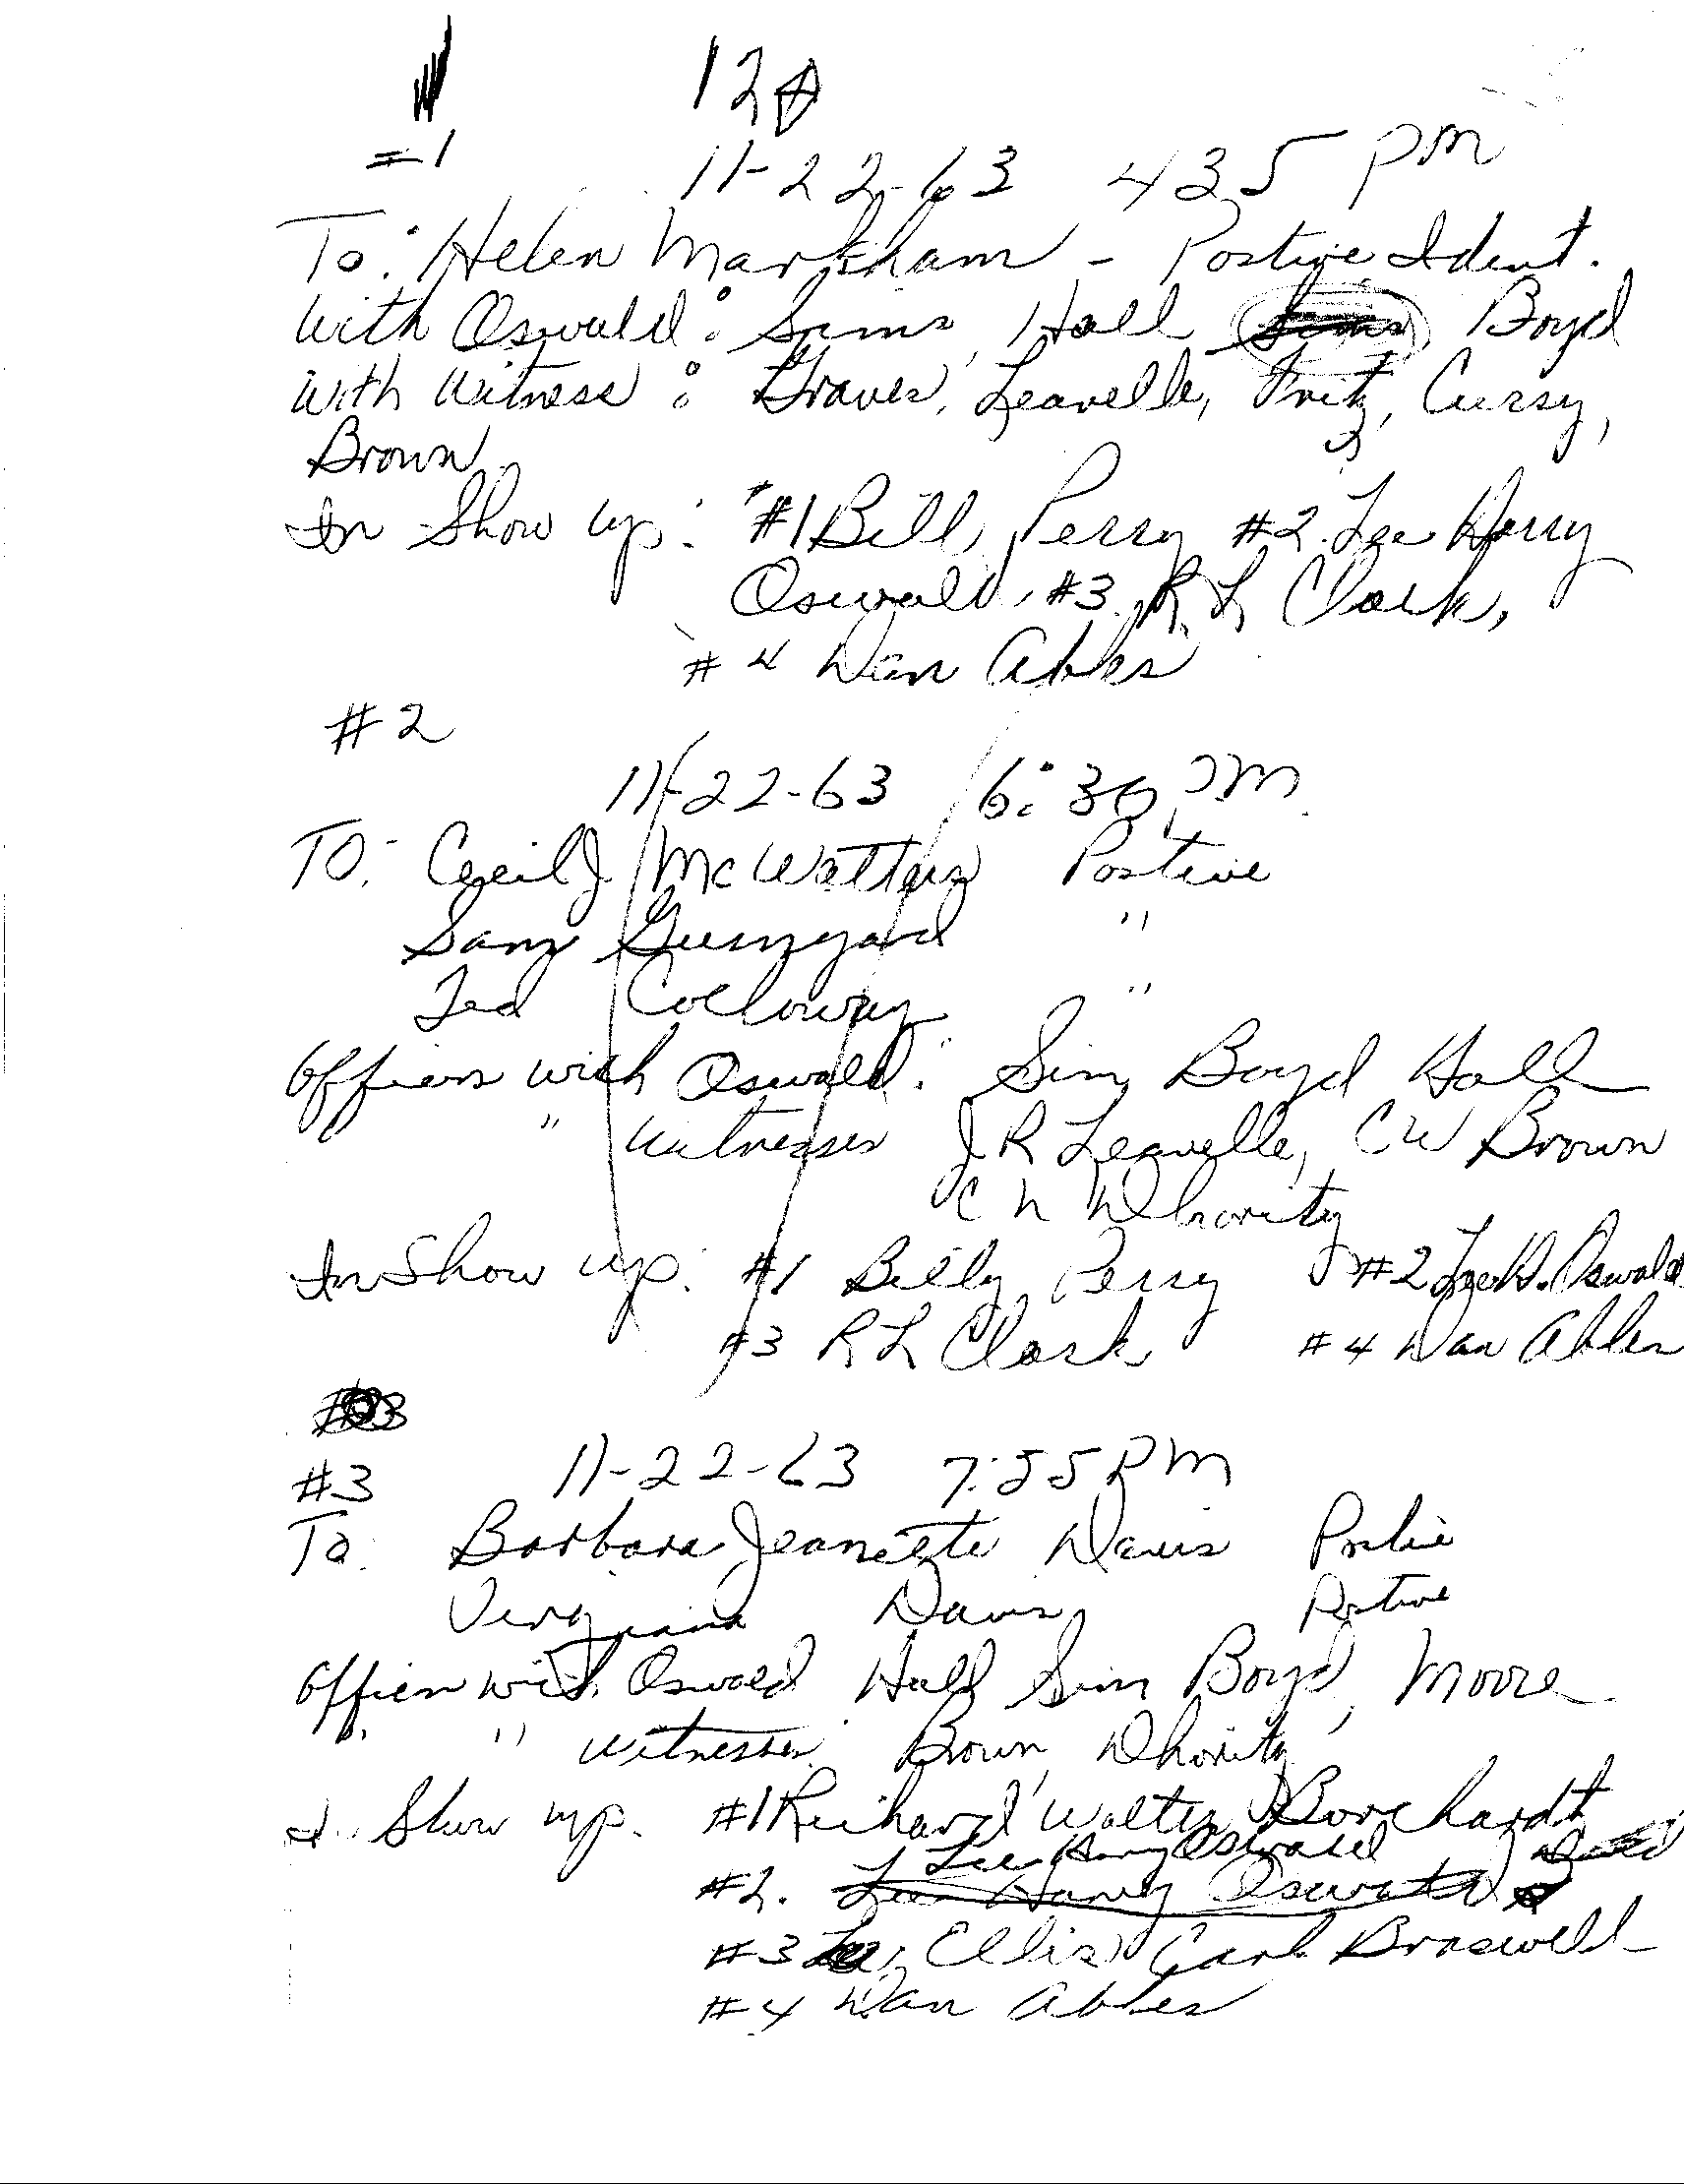 12
#1
11-22-63 435 PM
To: Helen Markham - Postive Ident.
With Oswald: Sims, Hall Sims Boyd
With Witness: Graves, Leavelle, Fritz, Curry,
Brown
In Show up: #1 Bill Perry #2. Lee Harvy
Oswald, #3 R L Clark,
#4 Dan Ables
#2
11-22-63 6:30 PM
TO: Cecil J McWatters Postive
Sam Guinyard "
Ted Colloway "
Officers with Oswald: Sims Boyd Hall
" Witnesses J R Leavelle, C W Brown
C N Dhority
In Show up: #1 Billy Perry #2 Lee H. Oswald
#3 R L Clark #4 Dan Ables
#3
#3 11-22-63 7:55 PM
To: Barbara Jeanette Davis Postive
Virginia Davis Postive
Officers with Oswald Hall Sims Boyd, Moore
" " Witnesses Brown, Dhority
In Show up. #1 Richard Walter Borchardt
Lee Harvy Oswald
#2. Lee Harvey Oswald
#3 Ellis Carl Braswell
#4 Dan Ables